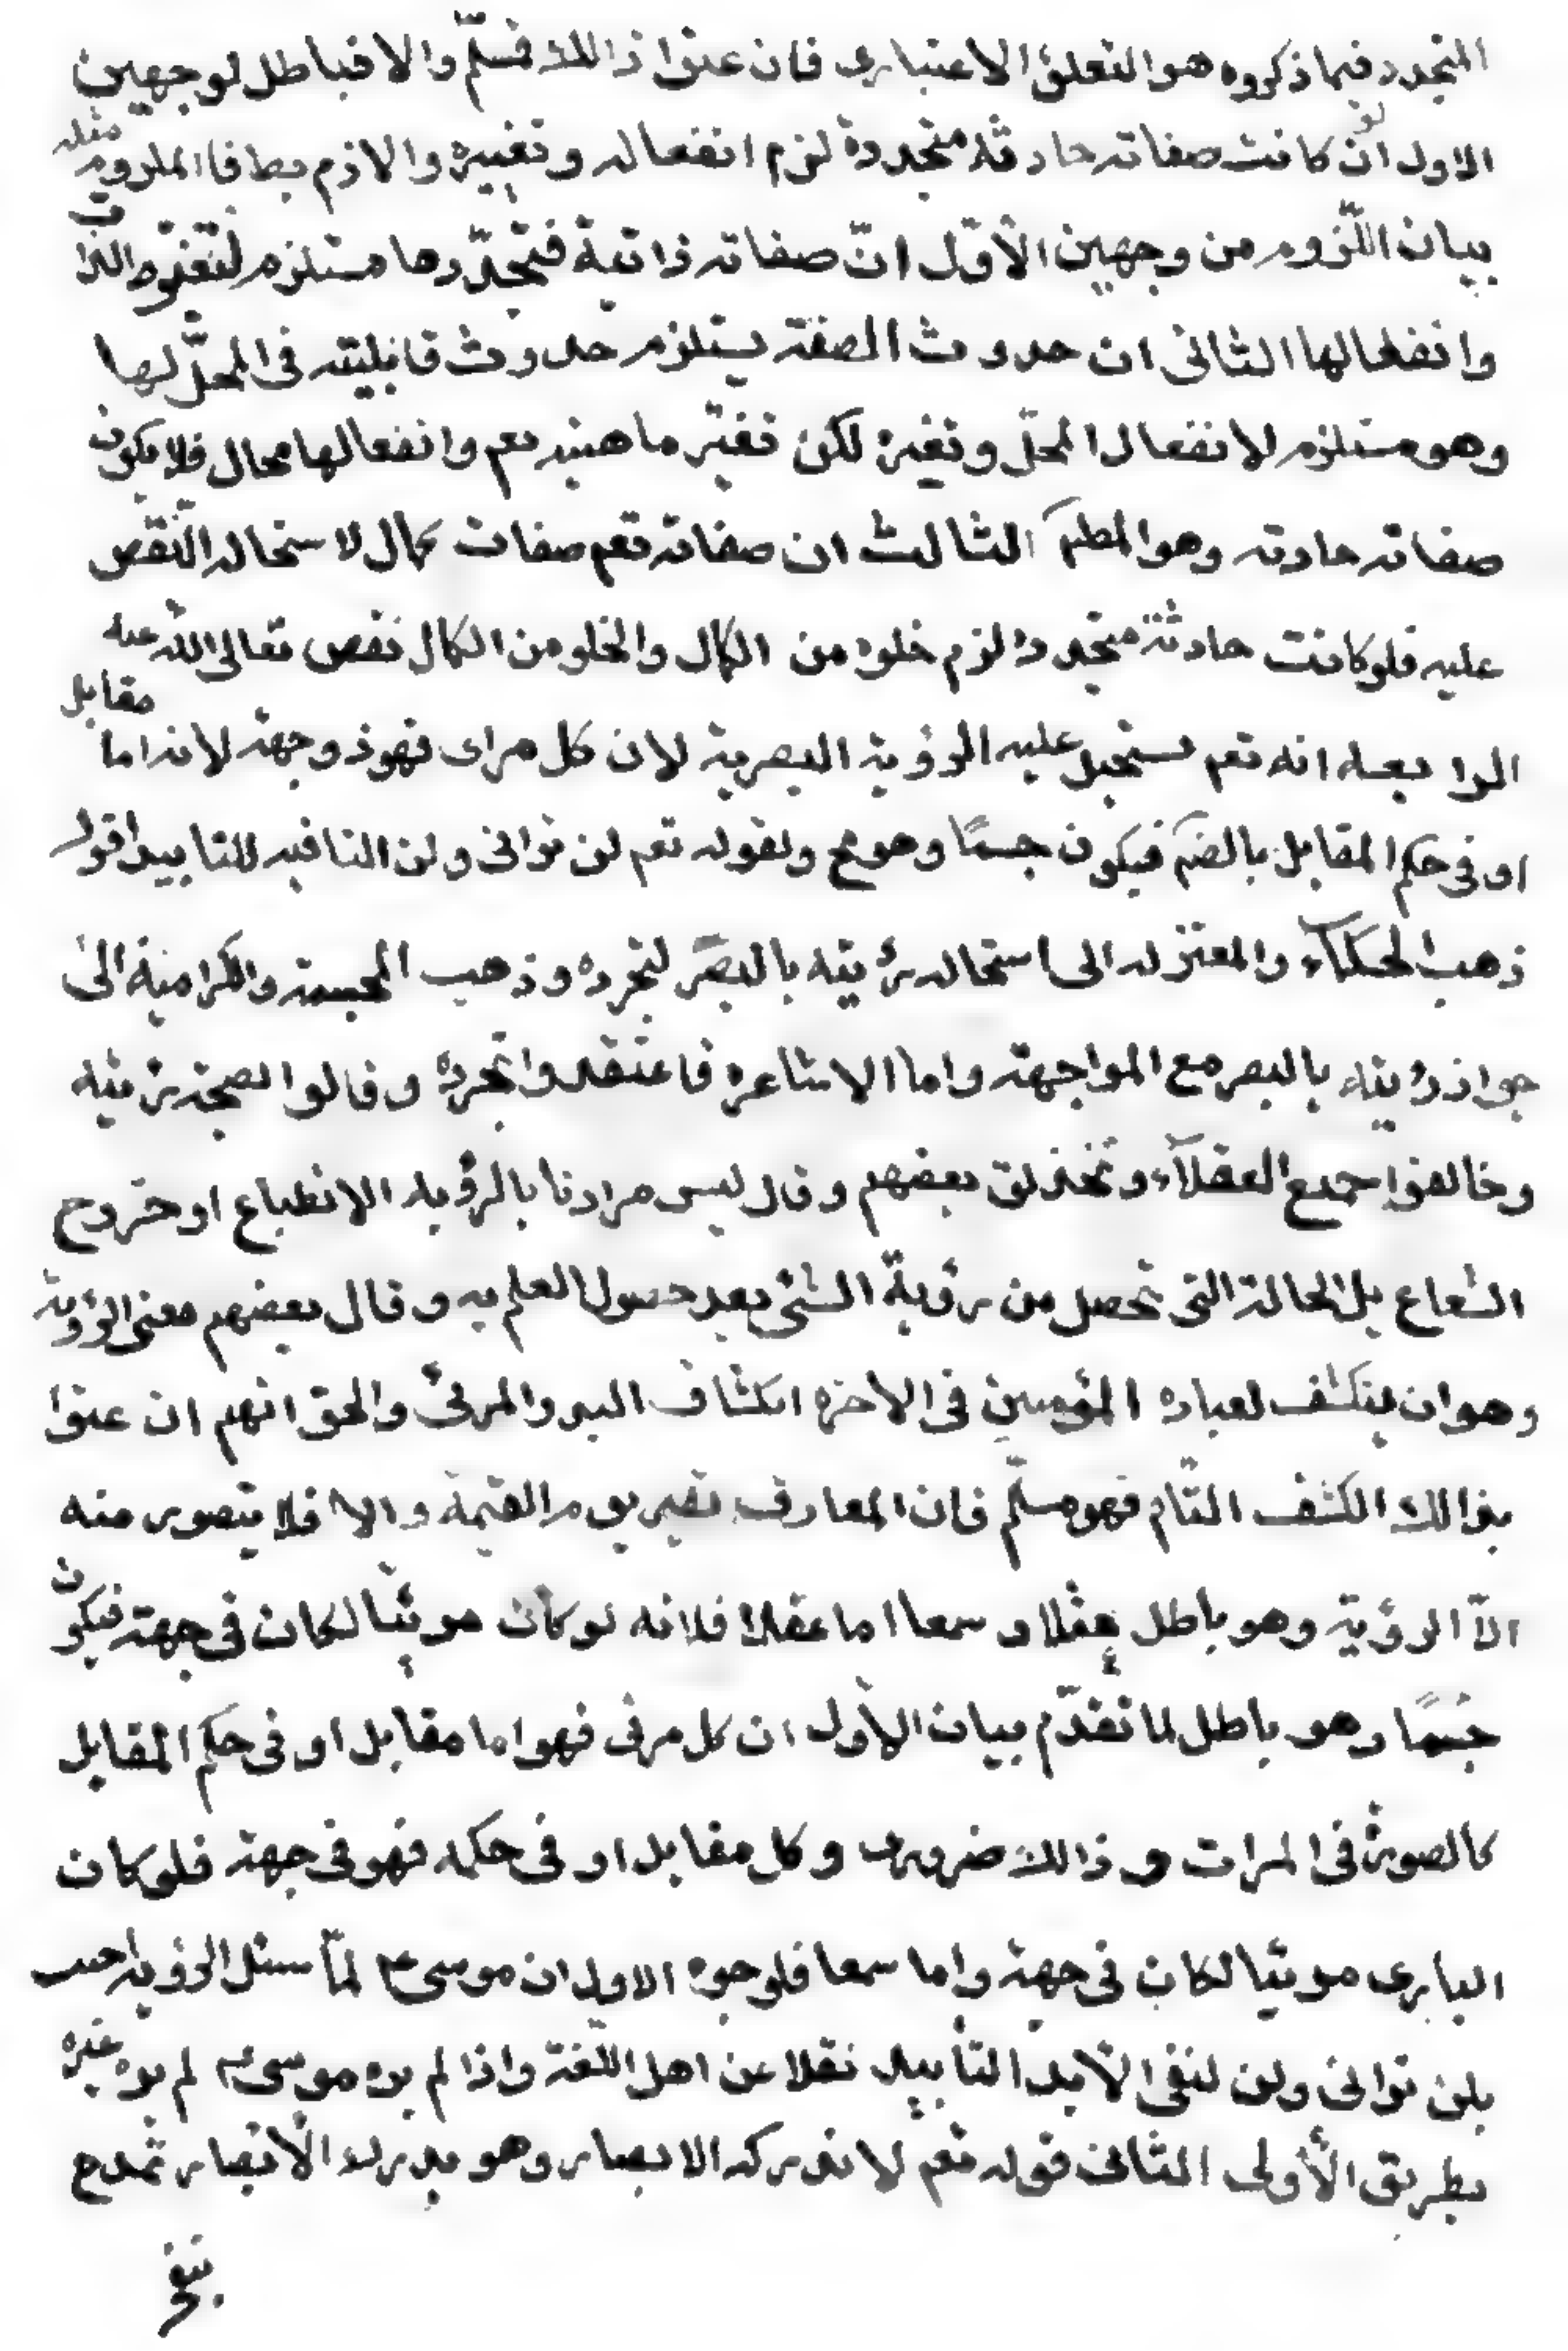 المتجدد فيما ذكروه هو التعلق الاعتبارى فان عنوا ذالك فمسلّم والا فباطل لوجهين
الاول انّ لو كانت صفاته حادثة متجددة لزم انفعاله وتغييره والازم بط فا الملزوم مثله
بيان اللّزوم من وجهين الأوّل انّ صفاته ذاتية فتجدّدها مستلزم لتغيّر الذات
وانفعالها الثانى ان حدوث الصفة يستلزم حدوث قابليته فى المحلّ لها
وهو مستلزم لانفعال المحلّ وتغيره لكن تغيّر ماهيته تعم وانفعالها محال فلا يكون
صفاته حادثه وهو المطم الثالث ان صفاته تعم صفات كمال لاستحاله النّقص
عليه فلو كانت حادثة متجدده لزم خلوه من الكمال والخلو من الكمال نقص تعالى الله عنه
الرابعه انه تعم يستحيل عليه الرؤية البصرية لان كل مراى فهو ذو جهة لانه اما مقابل
او فى حكم المقابل بالضم فيكون جسمًا وهو مح ولقوله تعم لن ترانى ولن النافيه للتابيد اقول
ذهب الحكمآء والمعتزله الى استحاله رؤيته بالبصر لتجرده وذهب المجسمة والكراميه الى
جواز رؤيته بالبصر مع المواجهة واما الاشاعره فاعتقدوا تجرده وقالوا بصحة رؤيته
وخالفوا جميع العقلآء وتحذلق بعضهم وقال ليس مرادنا بالرؤيه الانطباع او خروج
الشعاع بل الحالة التى تحصل من رؤية الشئ بعد حصول العلم به وقال بعضهم معنى الرؤية
وهو ان ينكشف لعباده المؤمنين فى الآخره انكشاف البدر والمرئى والحق انهم ان عنوا
بذالك الكشف التام فهو مسلّم فان المعارف تصير يوم القيمة والا فلا يتصور منه
الّا الرؤية وهو باطل عقلا وسمعا اما عقلا فلانه لو كان مرئيّا لكان فى جهة فيكون
جسمًا وهو باطل لما تقدّم بيان الأول ان كل مرئى فهو اما مقابل او فى حكم المقابل
كالصورة فى المرات وذالك ضرورى وكل مقابل او فى حكمه فهو فى جهة فلو كان
البارى مرئيا لكان فى جهة واما سمعا فلوجوه الاول ان موسى ع لمّا سئل الرؤية اجيب
بلن ترانى ولن لنفى الأبد التأبيد نقلا عن اهل اللّغة واذا لم يره موسى ع لم يره غيره
بطريق الأولى الثانى قوله تعم لا تدركه الابصار وهو يدرك الأبصار تمدح
بنفى